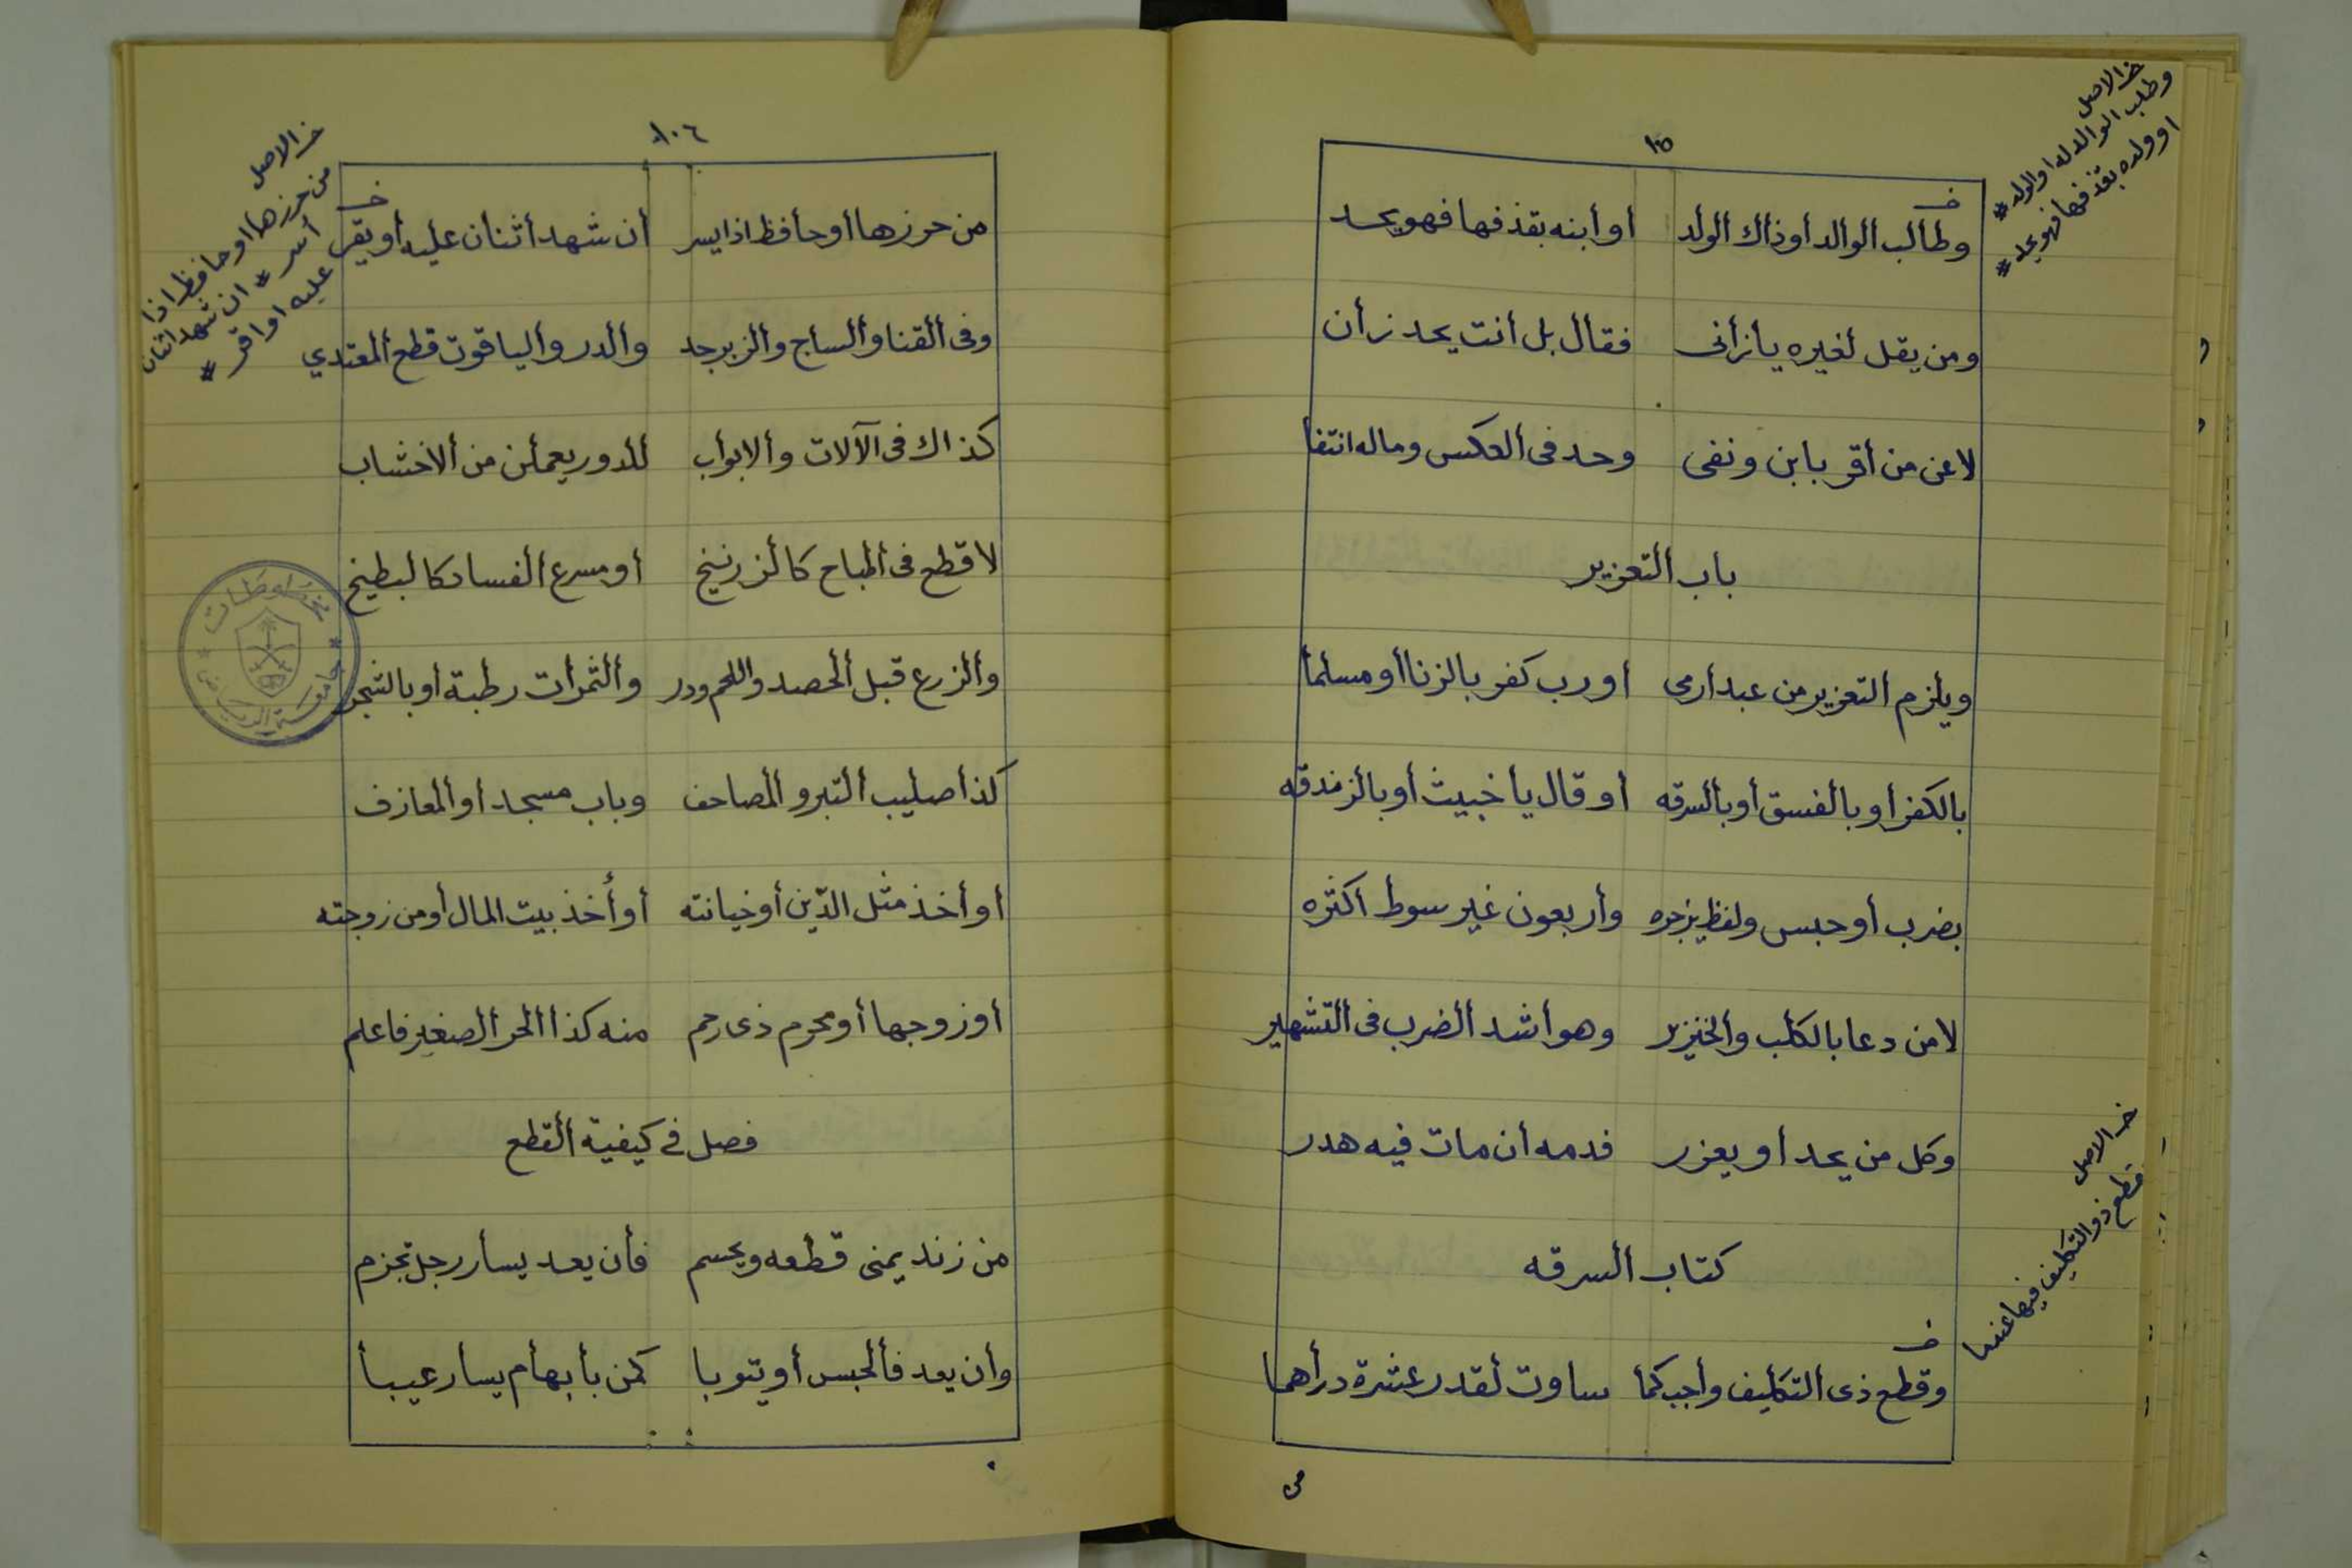 ١٠٥
خ الاصل
وطلب الوالد له او الولد #
او ولده بقذفها فهو يحد #
خ
وطالب الوالد أو ذاك الولد أو أبنه بقذفها فهو يحد
ومن يقل لغيره يا زأنى فقال بل أنت يحد زأن
لاعن من أقر بابن ونفى وحد فى العكس وماله انتفا
باب ألتعزير
ويلزم التعزير من عبدا رمى أو رب كفر بالزنا أو مسلما
بالكفر أو بالفسق أو بألسرقه أو قال يا خبيث أو بالزندقه
بضرب أو حبس ولفظ يزجره وأربعون غير سوط أكثره
لا من دعا بالكلب والخنزير وهو أشد ألضرب فى التشهير
وكل من يحد أو يعزر فدمه أن مات فيه هدر
كتاب ألسرقه
خ الاصل
قطع ذو التكليف فيها عندما
خ
وقطع ذى التكليف وأجب كما ساوت لقدر عشرة درأهما
١٠٦
خ الاصل
من حرزها او حافظ اذا
أسر # ان شهد اثنان
عليه او اقر #
خ
من حرزها أو حأفظ اذا يسر أن شهد أثنان عليه أو يقر
وفى ألقنا وألساج والزبرجد وألدر وألياقوت قطع ألمعتدي
كذاك فى الآلات وألابوأب للدور يعملن من ألاخشاب
لا قطع فى ألمباح كألزرنيخ أو مسرع ألفساد كالبطيخ
وألزرع قبل ألحصد واللحم ودر وألثمرأت رطبة أو بالشجر
كذأ صليب ألتبر وألمصاحف وباب مسجد أو ألمعازف
أو أخذ مثل الدّين أو خيانته أو أخذ بيت المال أو من زوجته
أو زوجها أو محرم ذى رحم منه كذا الحر ألصغير فاعلم
فصل في كيفية ألقطع
من زند يمنى قطعه ويحسم فأن يعد يسأر رجل تجزم
وأن يعد فألحبس أو يتوبا كمن بأبهأم يسأر عيبأ
مخطوطات
جامعة الرياض